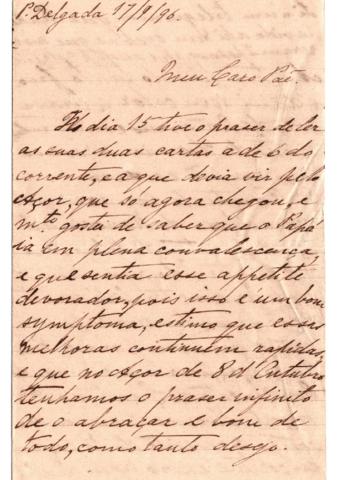 P. Delgada 17/9/96.
Meu Caro Pae.
No dia 15 tive o praser de ler
as suas duas cartas a de 6 do
corrente, e a que devia vir pelo
Açor, que só agora chegou, e
m.to gostei de saber que o Papá
ia em plena convalescença,
e que sentia esse appetite
devorador, pois isso é um bom
symptoma, estimo que essas
melhoras continuem rapidas,
e que no Açor de 8 d'Outubro
tenhamos o praser infinito
de o abraçar e bom de
todo, como tanto desejo.